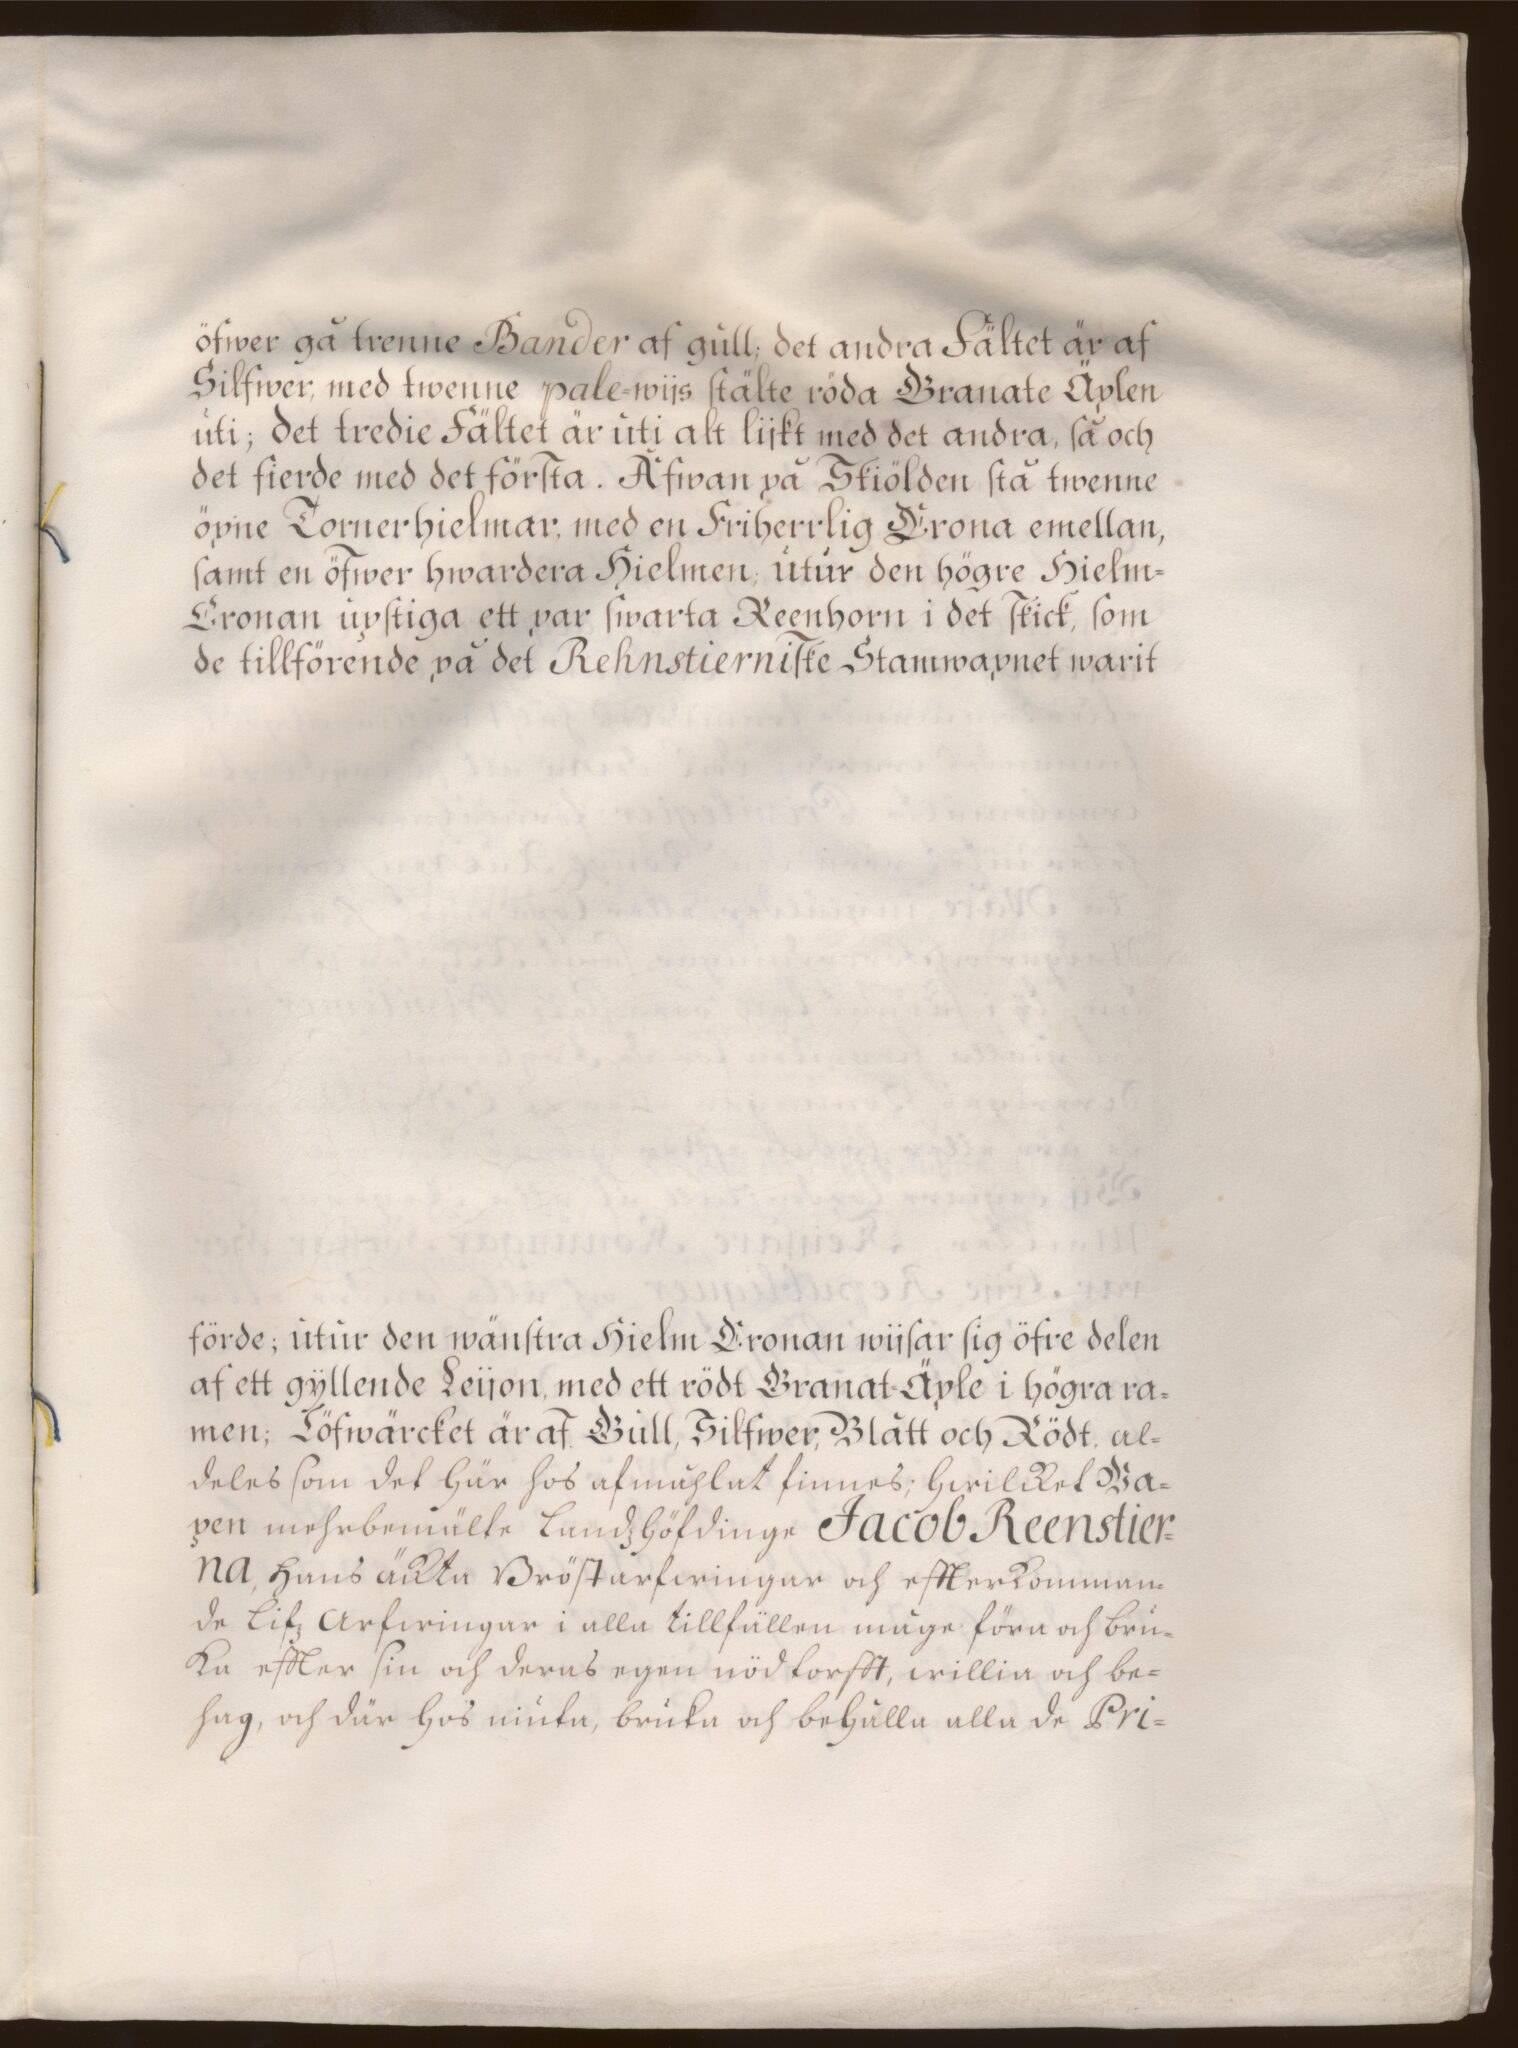 öfwer gå trenne Bander af gull; det andra Fältet är af
Silfwer, med twenne pale=wijs stälte röda Granate Äplen
uti; det tredie Fältet är uti alt lijkt med det andra, så och
det fierde med det första. Åfwan på Skiölden stå twenne
öpne Tornerhielmar, med en Friherrlig Crona emellan,
samt en öfwer hwardera Hielmen; utur den högre Hielm=
Cronan upstiga ett par swarta Reenhorn i det skick, som
de tillförende på det Rehnstierniske Stamwapnet warit
förde; utur den wänstra Hielm Cronan wijsar sig öfre delen
af ett gyllende Leijon, med ett rödt Granat-Äple i högra ra=
men; Löfwärcket är af Gull, Silfwer, Blått och Rödt, al=
deles som det här hos afmåhlat finnes; hwilket Wa=
pen mehrbemälte Landzhöfdinge Jacob Reenstier=
na, hans äkta Bröstarfwingar och effterkomman=
de Lifz Arfwingar i alla tillfällen måge föra och bru=
ka effter sin och deras egen nödtorfft, willia och be=
hag, och där hos niuta, bruka och behålla alla de Pri=